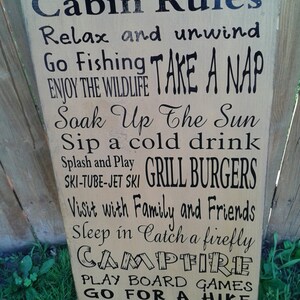 Cabin Rules
Relax and unwind
Go Fishing
ENJOY THE WILDLIFE TAKE A NAP
Soak Up The Sun
Sip a cold drink
Splash and Play
SKI-TUBE-JET SKI GRILL BURGERS
Visit with Family and Friends
Sleep in Catch a firefly
CAMPFIRE
PLAY BOARD GAMES
GO FOR A HIKE